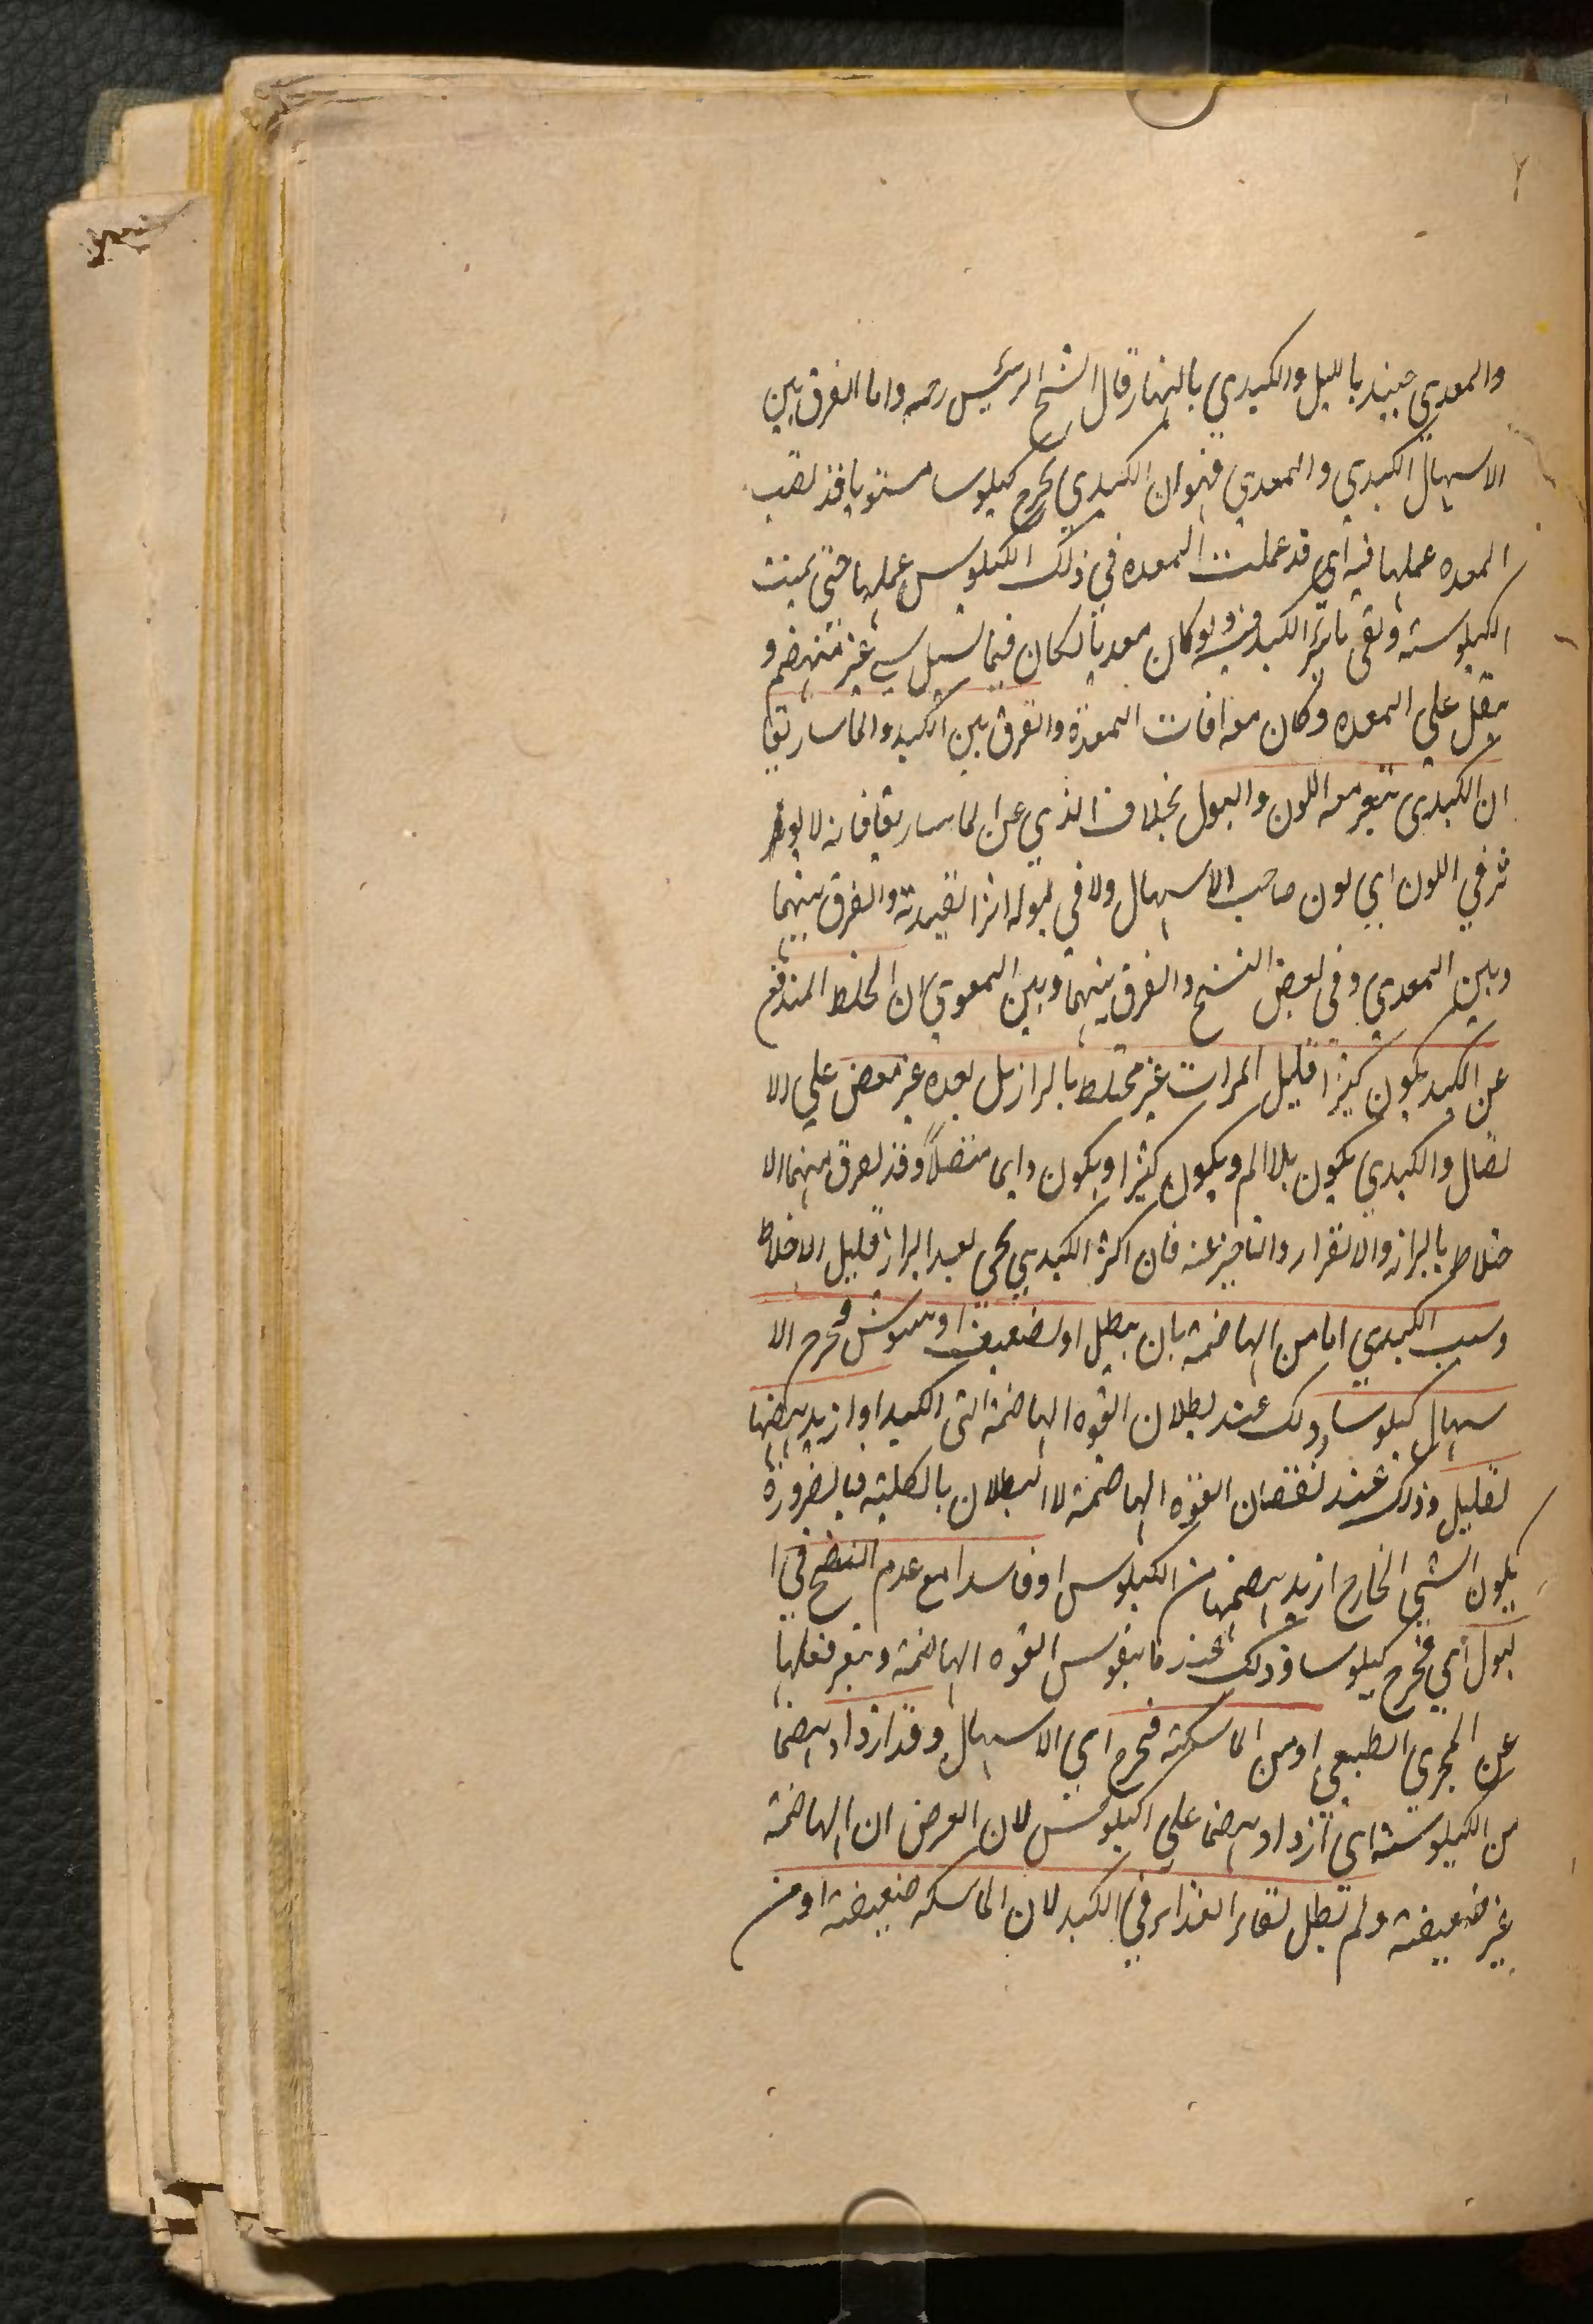 ٢
والمعدي حينئذ بالليل والكبدي بالنهار قال الشيخ الرئيس رحمه واما الفرق بين
الاسهال الكبدي والمعدي فهو ان الكبدي يخرج كيلوسا مستويا قد لقيت
المعده عملها فيه اي قد عملت المعده في ذلك الكيلوس عملها حتى تمت
الكيلوسته وبقى تاثير الكبد فيه ولو كان معديا لكان فيما يسيل شي غير منهضم و
يثقل على المعده وكان معه افات المعدة والفرق بين الكبد والماساريقا
ان الكبدي يتغير معه اللون والبول بخلاف الذي عن الماساريقا فانه لا يوثر
ثر في اللون اي لون صاحب الاسهال ولا في بوله اثرا لقيدته والفرق بينهما
وبين المعدي وفى بعض النسخ والفرق بينهما وبين المعوي ان الخلط المندفع
عن الكبد يكون كثيرا قليل المرات غير مختلط بالبراز بل بعده غير معض على الا
تصال والكبدي يكون بلا الم ويكون كثيرا ويكون دايما متصلاً وقد يفرق بينهما الا
ختلاط بالبراز والانفراد والتاخير عنه فان اكثر الكبدي يجي بعد البراز قليل الاختلاط
وسبب الكبدي اما من الهاضمة بان يبطل او يضعف او يشوش فخرج الا
سهال كيلوسا وذلك عند بطلان القوه الهاضمة التى الكبد او ازيد هضما
بقليل وذلك عند نقصان القوه الهاضمة لا البطلان بالكليه فبالضرورة
يكون الشي الخارج ازيد هضما من الكيلوس او فاسدا مع عدم النضج في ا
لبول اي فيخرج كيلوسا وذلك عند ما يتشوش القوه الهاضمة ويتغير فعلها
عن المجرى الطبيعى او من الماسكته فيخرج اي الاسهال وقد ازداد هضما
من الكيلوسته اي ازداد هضما على الكيلوس لان الغرض ان الهاضمة
غير ضعيفة ولم تبطل لبقاء الغذاء في الكبد لان الماسكه ضعيفة او من